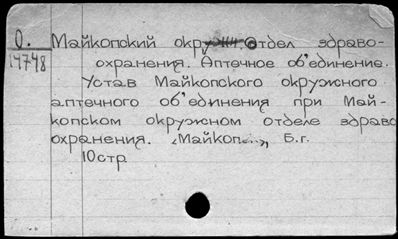 О. Майкопский окружн. отдел здраво-
14748 охранения. Аптечное об'единение.
Устав Майкопского окружного
аптечного об'единения при Май-
копском окружном отделе здраво
охранения. „Майкоп...", Б.г.
10стр